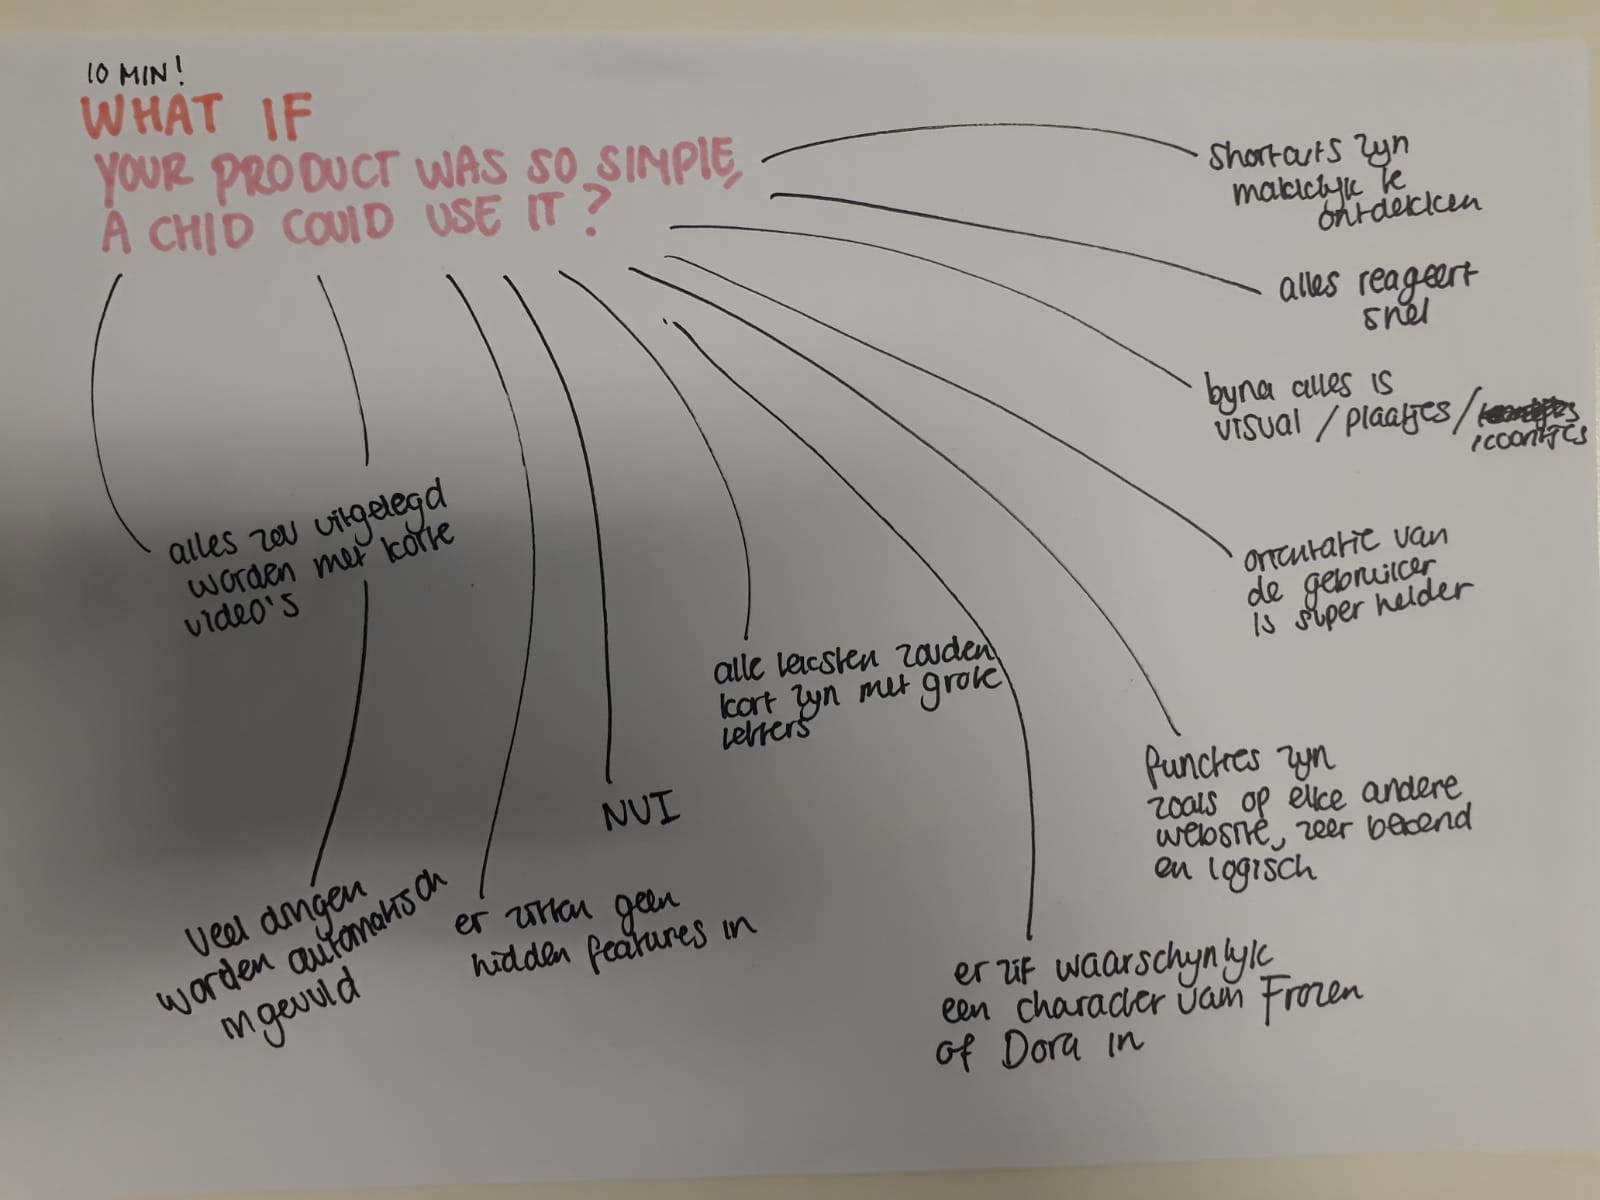 10 MIN!
WHAT IF
YOUR PRODUCT WAS SO SIMPLE,
A CHILD COULD USE IT?
shortcuts zyn
makkelyk te
ontdekken
alles reageert
snel
byna alles is
visual / plaatjes /
icoontjes
orientatie van
de gebruiker
is super helder
functies zyn
zoals op elke andere
website, zeer bekend
en logisch
er zit waarschynlyk
een character van Frozen
of Dora in
alle teksten zouden
kort zyn met grote
letters
NUI
er zitten geen
hidden features in
alles zou uitgelegd
worden met korte
video's
veel dingen
worden automatisch
ingevuld